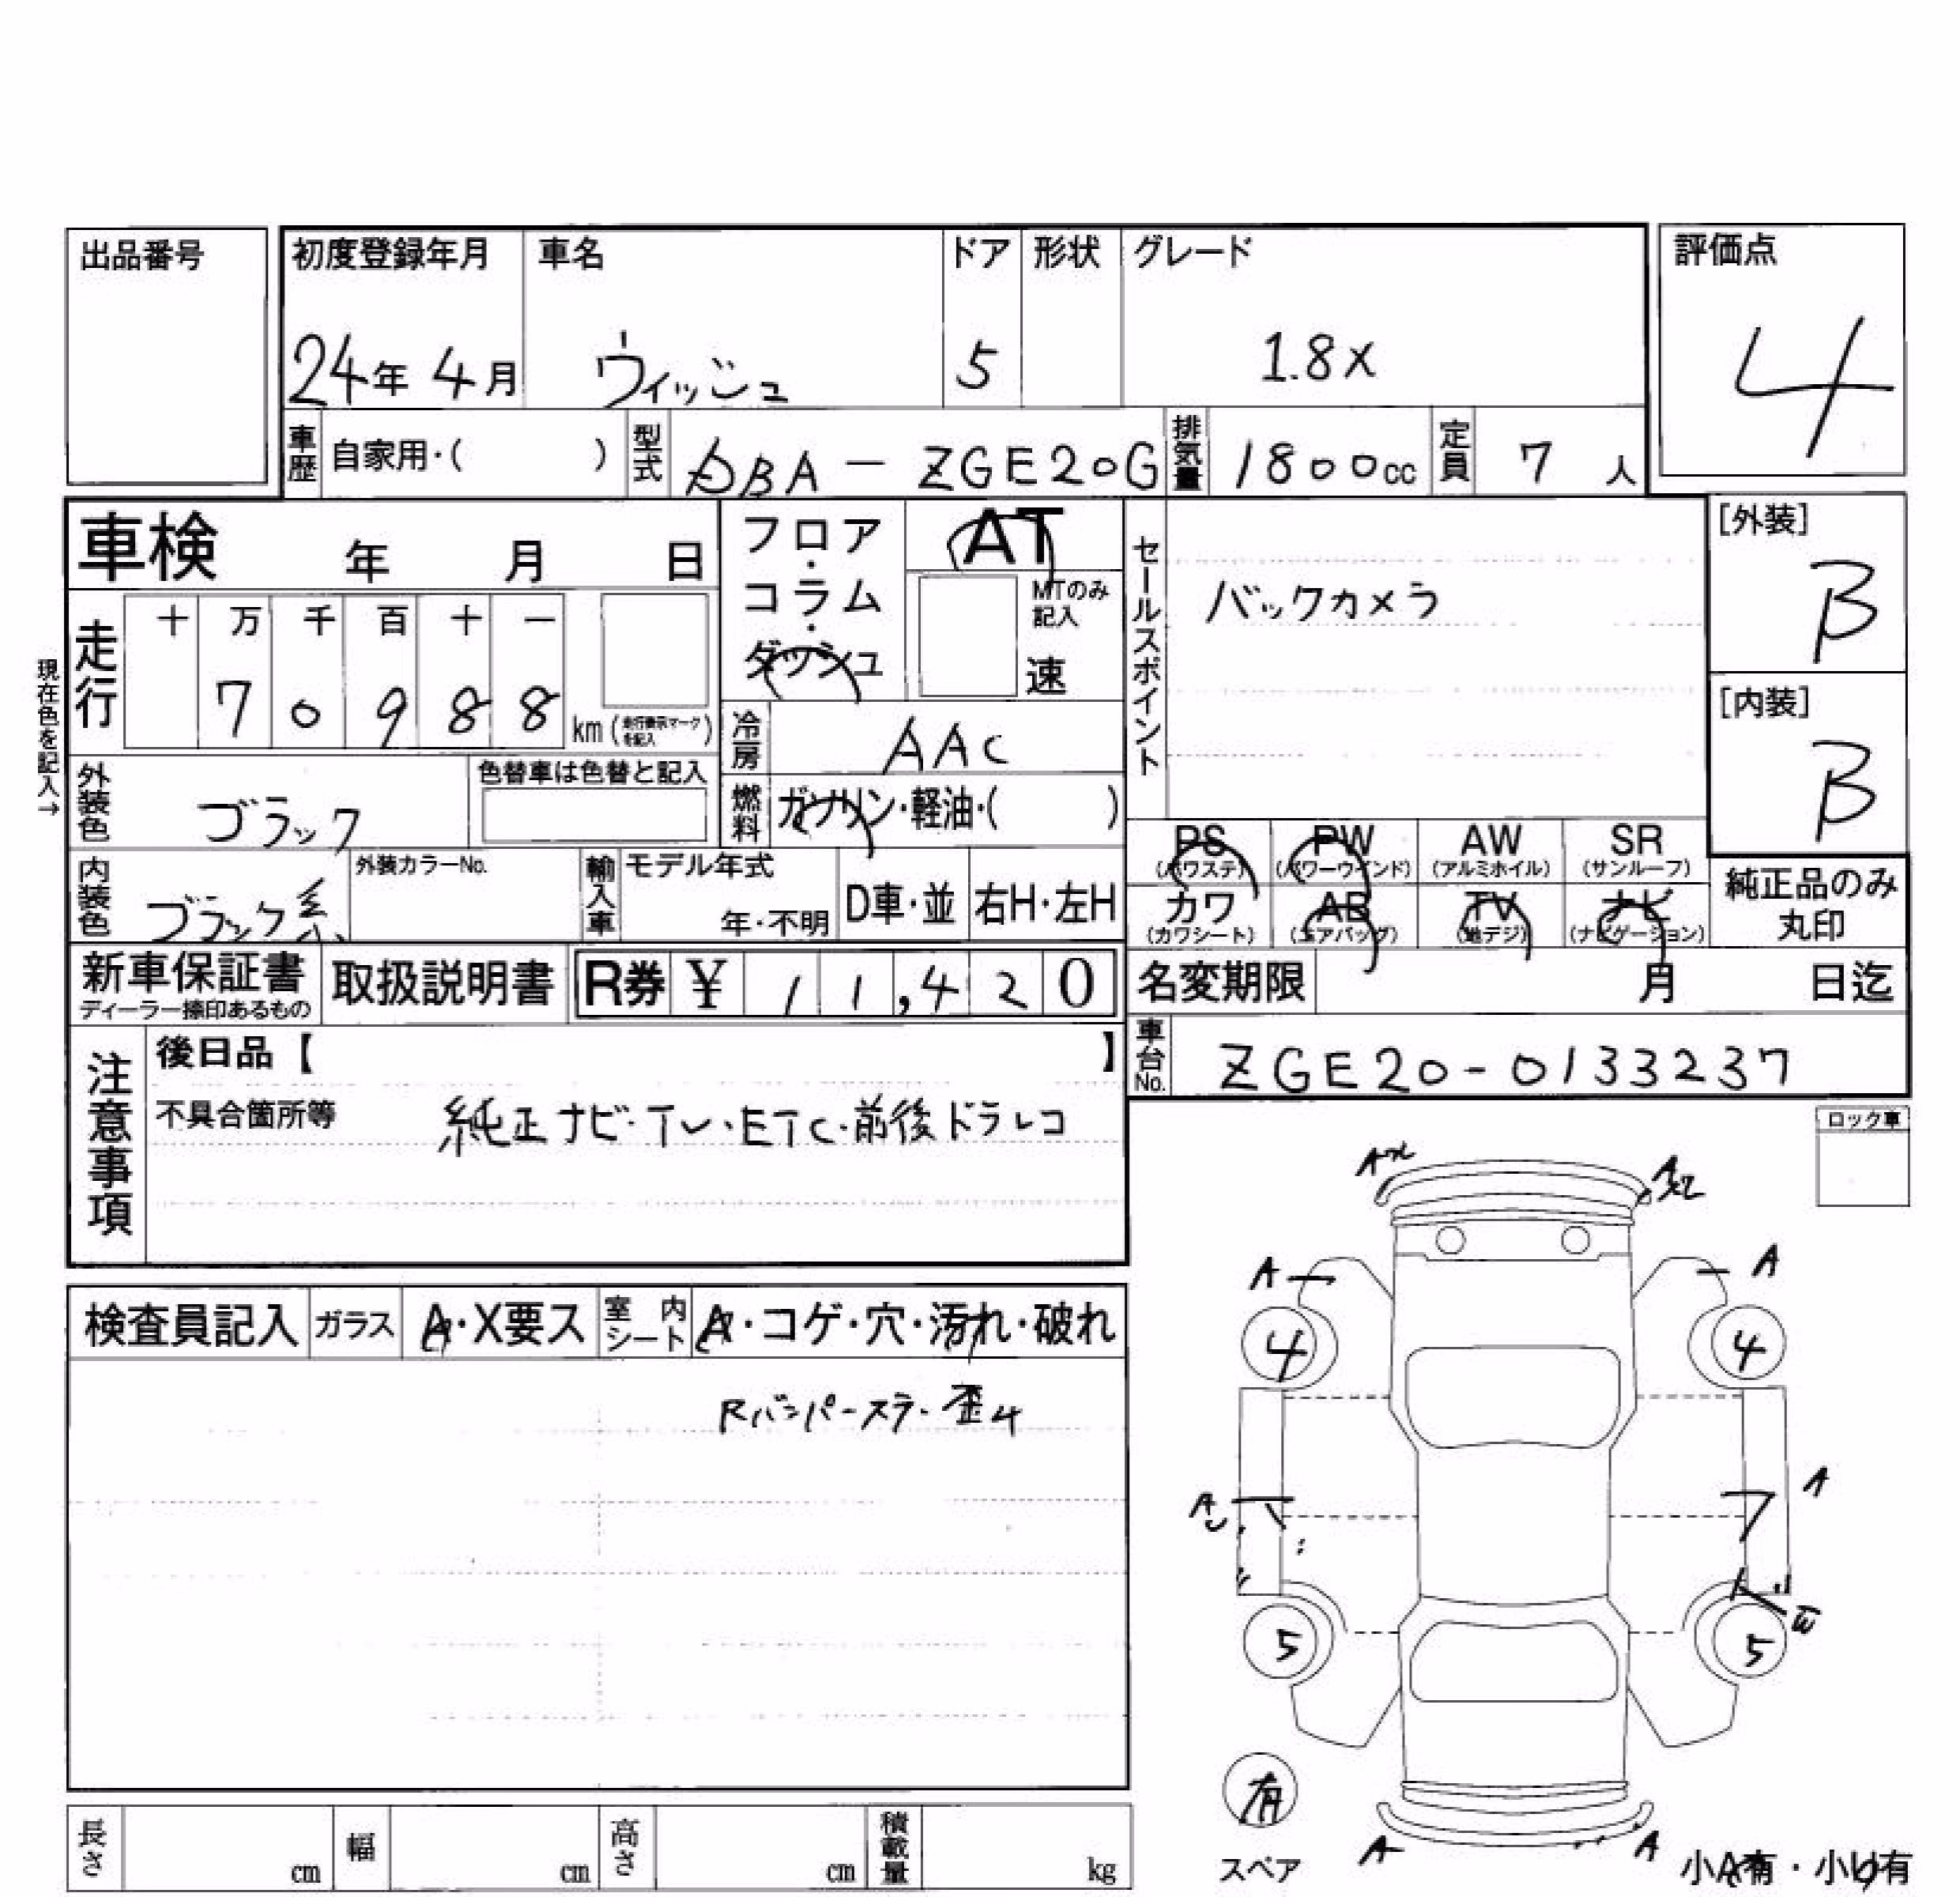 出品番号
初度登録年月 車名 ドア 形状 グレード 評価点
24年 4月 ウィッシュ 5 1.8X 4
車歴 自家用・( ) 型式 DBA - ZGE20G 排気量 1800cc 定員 7人
車検 年 月 日
フロア・コラム・ダッシュ AT
MTのみ記入 速
セールスポイント
バックカメラ
[外装]
B
[内装]
B
現在色を記入→
走行 十 万 千 百 十 一
7 0 9 8 8 km (走行表示マークを記入)
冷房 AAC
外装色 ブラック 色替車は色替と記入
燃料 ガソリン・軽油・( )
内装色 ブラック系 外装カラーNo. 輸入車 モデル年式 年・不明 D車・並 右H・左H
PS (パワステ) PW (パワーウインド) AW (アルミホイル) SR (サンルーフ)
カワ (カワシート) AB (エアバッグ) TV (地デジ) ナビ (ナビゲーション)
純正品のみ丸印
新車保証書 ディーラー捺印あるもの 取扱説明書 R券 ¥ 11,420
名変期限 月 日迄
車台No. ZGE20-0133237
注意事項
後日品【 】
不具合箇所等 純正ナビ・TV・ETC・前後ドラレコ
ロック車
検査員記入 ガラス A・X要ス 室内シート A・コゲ・穴・汚れ・破れ
Rバンパースラ・歪4
A
A
A A
4 4
A A
5 5
有
スペア
A A
小A有・小U有
長さ cm 幅 cm 高さ cm 積載量 kg